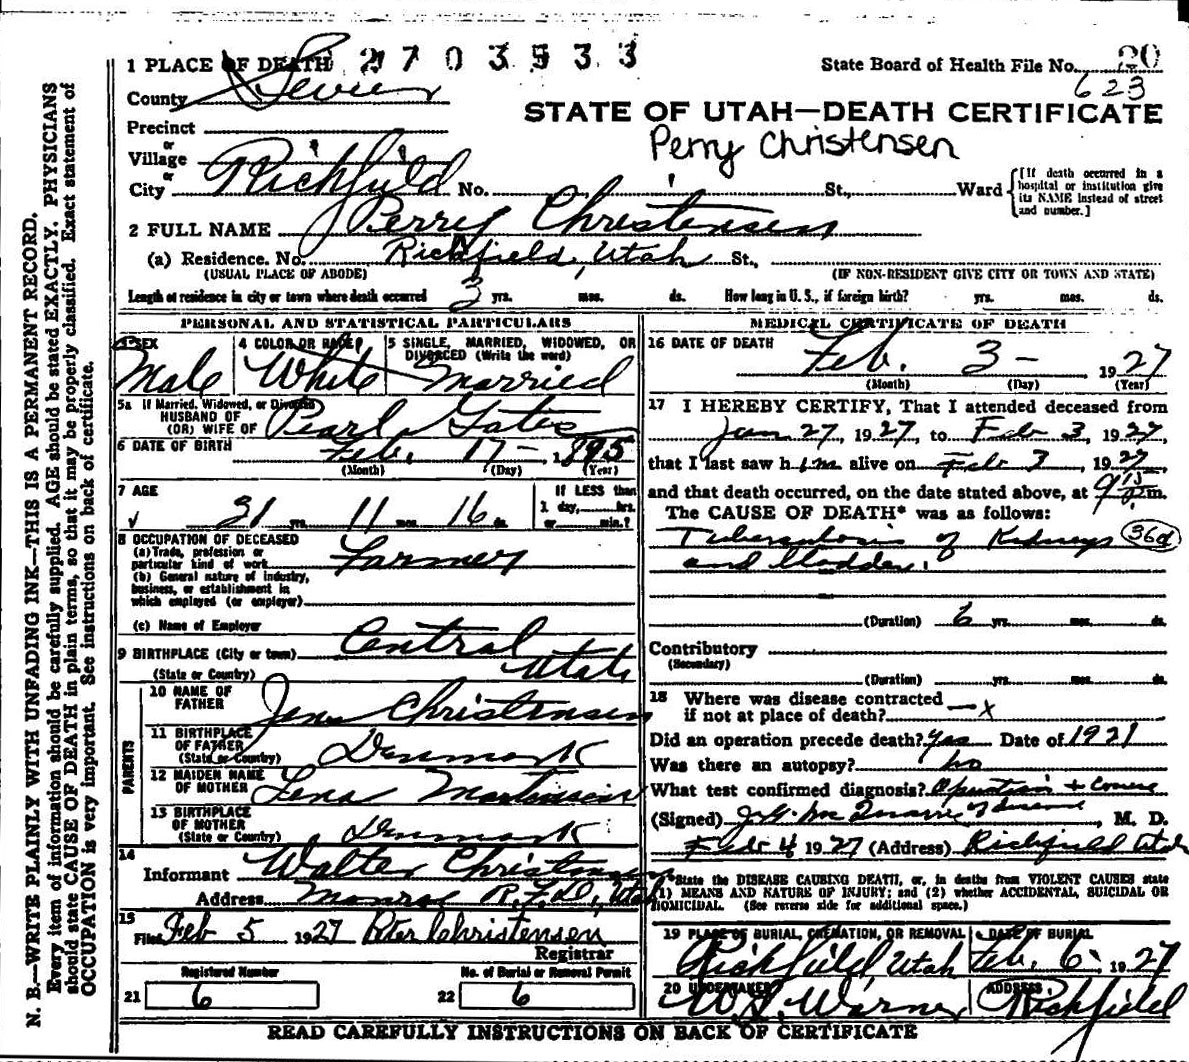 1 PLACE OF DEATH 2703533
State Board of Health File No. 20
623
County Sevier
STATE OF UTAH—DEATH CERTIFICATE
Precinct
Perry Christensen
or
Village
or
City Richfield No. St., Ward
[If death occurred in a hospital or institution give its NAME instead of street and number.]
2 FULL NAME Perry Christensen
(a) Residence. No. Richfield, Utah St.,
(USUAL PLACE OF ABODE) (IF NON-RESIDENT GIVE CITY OR TOWN AND STATE)
Length of residence in city or town where death occurred 3 yrs. mos. ds. How long in U. S., if foreign birth? yrs. mos. ds.
PERSONAL AND STATISTICAL PARTICULARS
3 SEX 4 COLOR OR RACE 5 SINGLE, MARRIED, WIDOWED, OR DIVORCED (Write the word)
Male White Married
5a If Married, Widowed, or Divorced
HUSBAND OF
(OR) WIFE OF Pearl Gates
6 DATE OF BIRTH Feb. 17 - 1895
(Month) (Day) (Year)
7 AGE If LESS than
1 day, hrs.
31 yrs. 11 mos. 16 ds. or min.?
8 OCCUPATION OF DECEASED
(a) Trade, profession or
particular kind of work Farmer
(b) General nature of industry,
business, or establishment in
which employed (or employer)
(c) Name of Employer
9 BIRTHPLACE (City or town) Central
(State or Country) Utah
PARENTS
10 NAME OF
FATHER Jens Christensen
11 BIRTHPLACE
OF FATHER
(State or Country) Denmark
12 MAIDEN NAME
OF MOTHER Lena Mortensen
13 BIRTHPLACE
OF MOTHER
(State or Country) Denmark
14
Informant Walter Christensen
Address Monroe R.F.D., Utah
15
Filed Feb 5 1927 Peter Christensen
Registrar
Registered Number No. of Burial or Removal Permit
21 6 22 6
MEDICAL CERTIFICATE OF DEATH
16 DATE OF DEATH Feb. 3 - 1927
(Month) (Day) (Year)
17 I HEREBY CERTIFY, That I attended deceased from
Jan 27, 1927, to Feb 3, 1927,
that I last saw him alive on Feb 3, 1927,
and that death occurred, on the date stated above, at 9 15 p.m.
The CAUSE OF DEATH* was as follows:
Tuberculosis of Kidneys 36a
and bladder.
(Duration) 6 yrs. mos. ds.
Contributory
(Secondary)
(Duration) yrs. mos. ds.
18 Where was disease contracted
if not at place of death? — x
Did an operation precede death? Yes Date of 1921
Was there an autopsy? no
What test confirmed diagnosis? Operation + Course
of disease
(Signed) J.G. McQuarrie, M. D.
Feb 4 1927 (Address) Richfield Utah
*State the DISEASE CAUSING DEATH, or, in deaths from VIOLENT CAUSES state
(1) MEANS AND NATURE OF INJURY; and (2) whether ACCIDENTAL, SUICIDAL OR
HOMICIDAL. (See reverse side for additional space.)
19 PLACE OF BURIAL, CREMATION, OR REMOVAL DATE OF BURIAL
Richfield Utah Feb. 6 1927
20 UNDERTAKER ADDRESS
W.L. Warner Richfield
READ CAREFULLY INSTRUCTIONS ON BACK OF CERTIFICATE
N. B.—WRITE PLAINLY WITH UNFADING INK—THIS IS A PERMANENT RECORD.
Every item of information should be carefully supplied. AGE should be stated EXACTLY. PHYSICIANS
should state CAUSE OF DEATH in plain terms, so that it may be properly classified. Exact statement of
OCCUPATION is very important. See instructions on back of certificate.